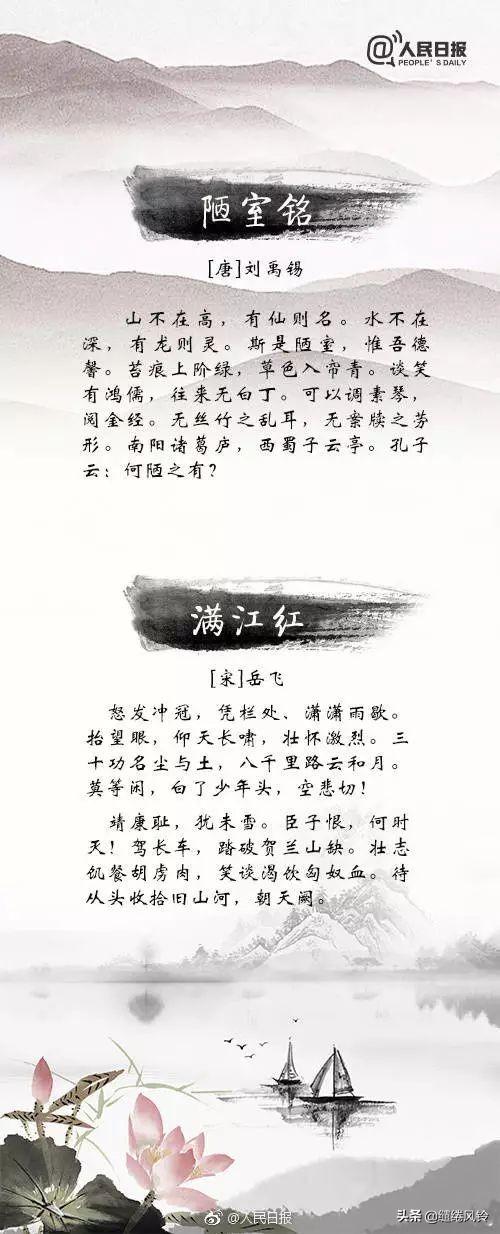 @人民日报
PEOPLE'S DAILY
陋室铭
[唐]刘禹锡
山不在高，有仙则名。水不在
深，有龙则灵。斯是陋室，惟吾德
馨。苔痕上阶绿，草色入帘青。谈笑
有鸿儒，往来无白丁。可以调素琴，
阅金经。无丝竹之乱耳，无案牍之劳
形。南阳诸葛庐，西蜀子云亭。孔子
云：何陋之有？
满江红
[宋]岳飞
怒发冲冠，凭栏处、潇潇雨歇。
抬望眼，仰天长啸，壮怀激烈。三
十功名尘与土，八千里路云和月。
莫等闲，白了少年头，空悲切！
靖康耻，犹未雪。臣子恨，何时
灭！驾长车，踏破贺兰山缺。壮志
饥餐胡虏肉，笑谈渴饮匈奴血。待
从头收拾旧山河，朝天阙。
@人民日报
头条 @缱绻风铃